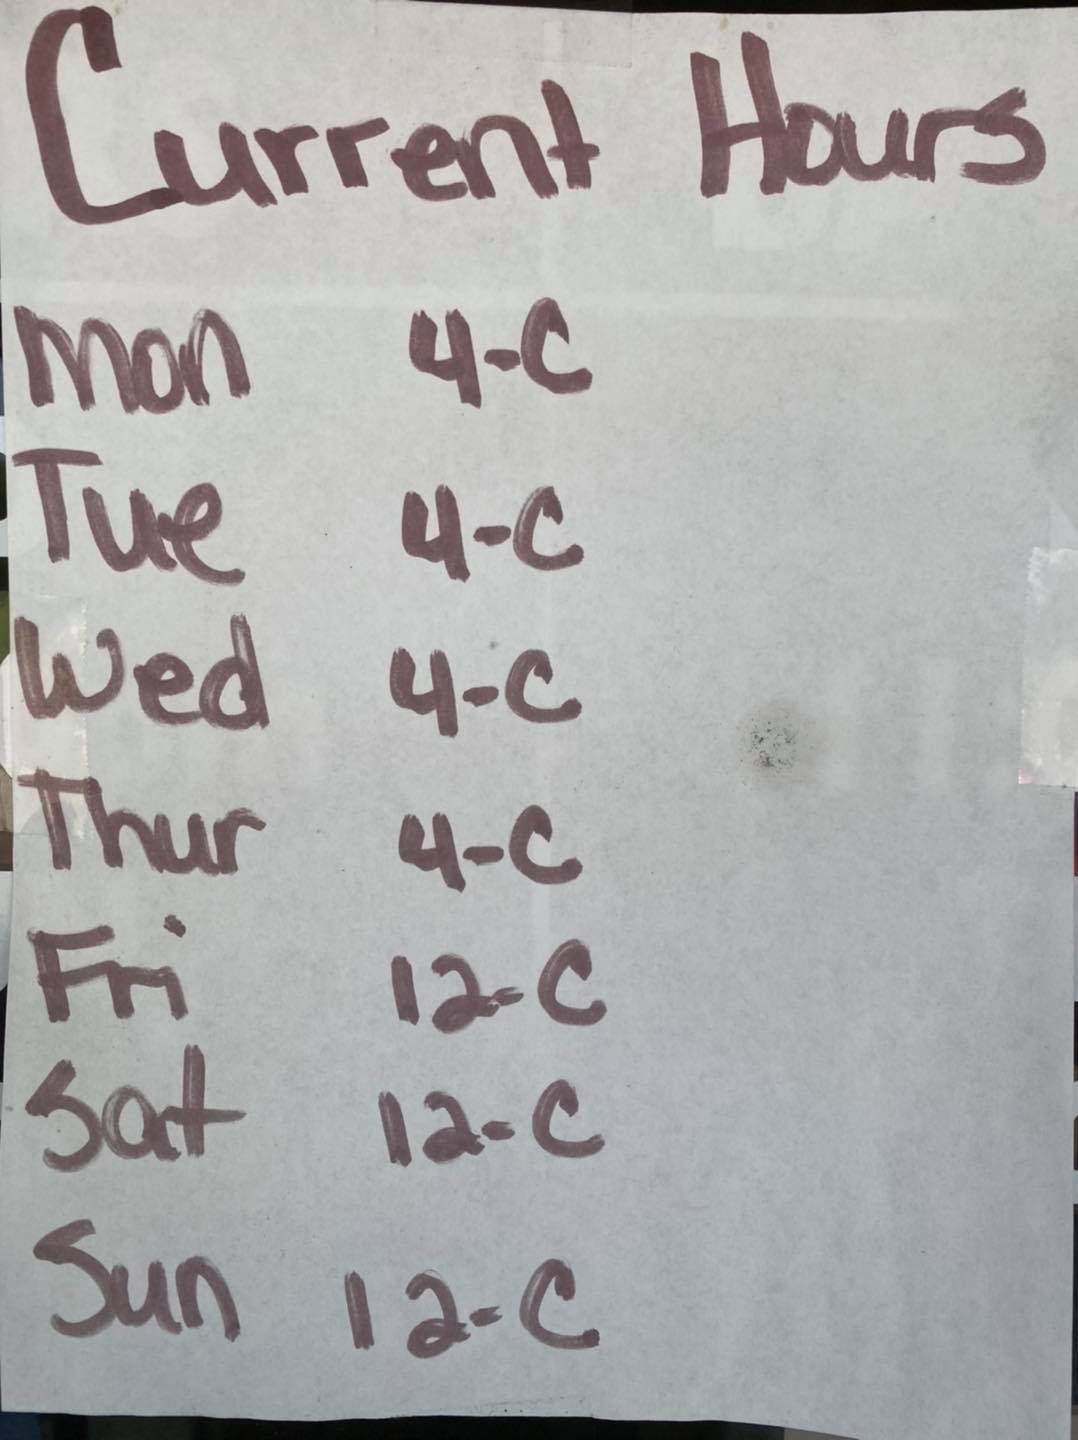 Current Hours
Mon 4-C
Tue 4-C
Wed 4-C
Thur 4-C
Fri 12-C
Sat 12-C
Sun 12-C